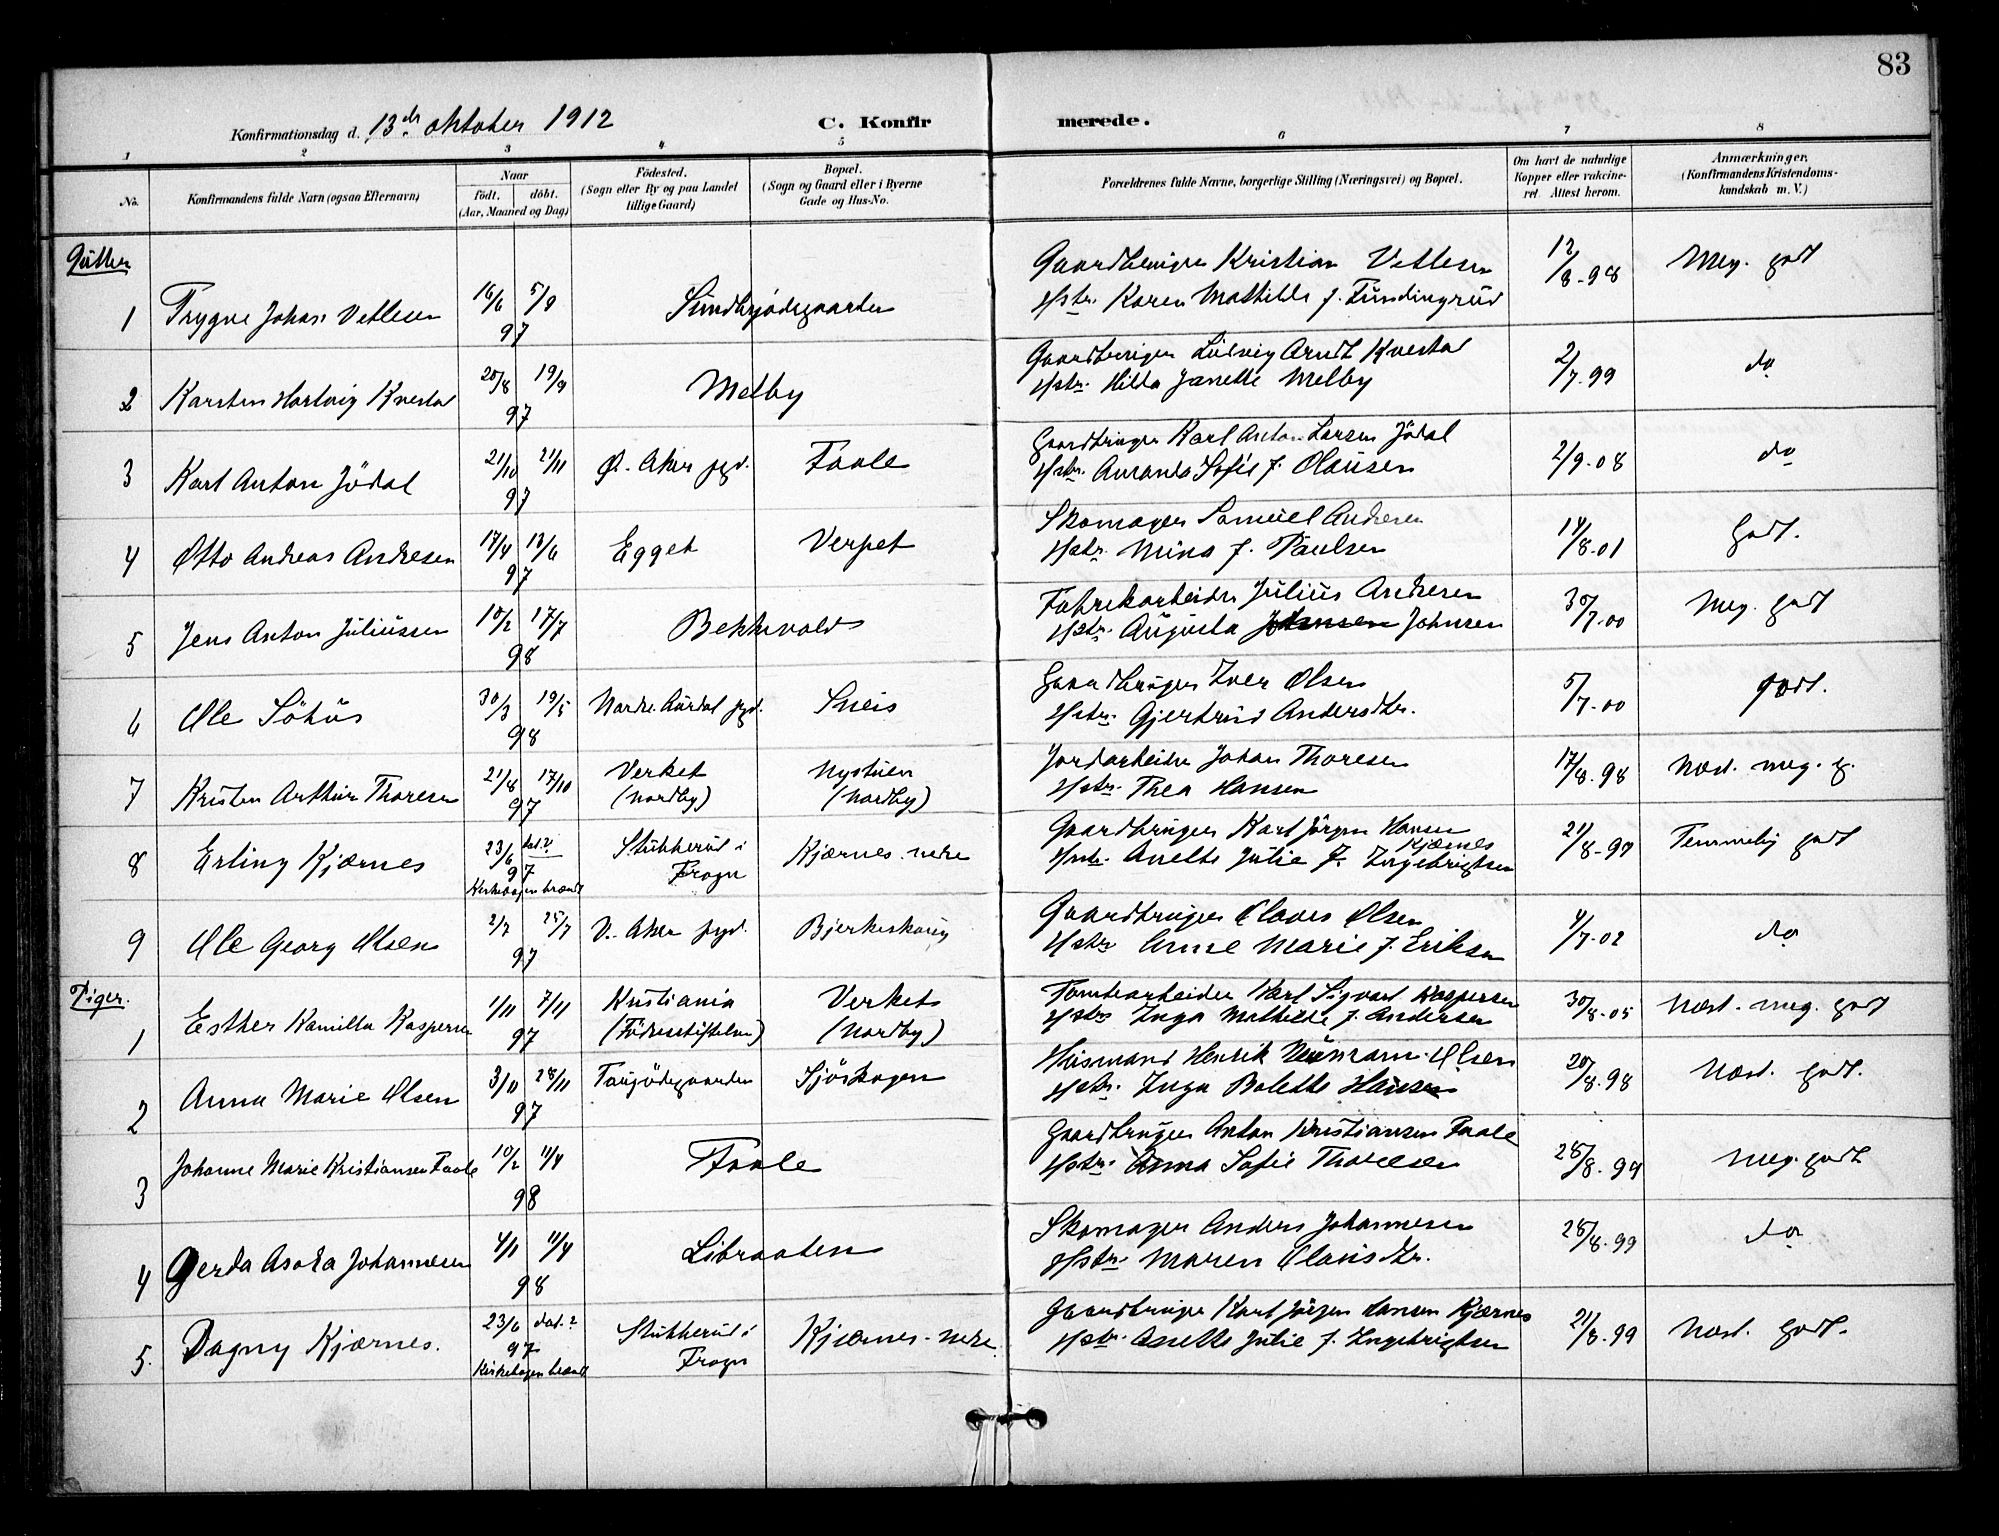 83
Konfirmationsdag d. 13de oktober 1912
C. Konfirmerede.
1 2 3 4 5 6 7 8
No.
Konfirmandens fulde Navn (ogsaa Efternavn)
Naar
født. døbt.
(Aar, Maaned og Dag)
Fødested.
(Sogn eller By og paa Landet
tillige Gaard)
Bopæl.
(Sogn og Gaard eller i Byerne
Gade og Hus-No.
Forældrenes fulde Navne, borgerlige Stilling (Næringsvei) og Bopæl.
Om havt de naturlige
Kopper eller vakcine-
ret Attest herom.
Anmærkninger.
(Konfirmandens Kristendoms-
kundskab m. V.)
Gutter
1 Trygve Johan Vetlesen 16/6 5/9 97 Sundbyødegaarden
Gaardbruger Kristian Vetlesen
Hstr. Karen Mathilde f. Tundingrud
12/8-98 Meg. godt
2 Karsten Hartvig Kvestad 20/8 19/9 97 Melby
Gaardbruger Ludvig Arndt Kvestad
Hstr. Hilda Janette Melby
2/7.99 do
3 Karl Anton Jödal 21/10 21/11 97 Ø. Aker pgd. Faale
Gaardbruger Karl Anton Larsen Jödal
Hstr. Amanda Sofie f. Olausen
2/9.08 do
4 Otto Andreas Andresen 17/4 13/6 97 Egget Verpet
Skomager Samuel Andresen
Hstr. Mina f. Paulsen
14/8.01 Godt.
5 Jens Anton Juliussen 10/2 17/7 98 Bekkevold
Fabrekarbeider Julius Andresen
Hstr. Augusta Johnsen
30/7.00 Meg. godt
6 Ole Söhus 30/3 19/5 98 Nordre Aurdal pgd. Sneis
Gaardbruger Iver Olsen
Hstr. Gjertrud Andersdtr.
5/7.00 godt.
7 Kristen Arthur Thoresen 21/8 17/10 97 Verket (Nordby) Nystuen (Nordby)
Jordarbeider Johan Thoresen
Hstr. Thea Hansen
17/8.98 Næst. meg. g.
8 Erling Kjærnes 23/6 dat.? 97 Kirkebogen brændt Stubberud i Frogn Kjærnes. nedre
Gaardbruger Karl Jörgen Hansen Kjærnes
Hstr. Anette Julie f. Ingebrigtsen
21/8-99 Temmelig godt
9 Ole Georg Olsen 2/7 25/7 97 V. Aker pgd. Bjerkeskoug
Gaardbruger Olaves Olsen
Hstr. Anne Marie f. Eriksen
4/7.02 do
Piger.
1 Esther Kamilla Kaspersen 1/11 7/11 97 Kristiania (Födselsstiftelsen) Verket (Nordby)
Tomtearbeider Karl Sigvart Kaspersen
Hstr. Inga Mathilde f. Andersen
30/8.05 Næst. meg. godt
2 Anna Marie Olsen 3/11 28/11 97 Taugödegaarden Sjöskogen
Husmand Henrik Neumann Olsen
Hstr. Inga Bolette Hansen
20/8.98 Næst. godt.
3 Johanne Marie Kristiansen Faale 10/2 11/4 98 Faale
Gaardbruger Anton Kristiansen Faale
Hstr. Anna Sofie Thoresen
28/8.99 Meg. godt
4 Gerda Asora Johannesen 4/1 11/4 98 Libraaten
Skomager Anders Johannesen
Hstr. Maren Olausdtr.
28/8.99 do
5. Dagny Kjærnes. 23/6 dat.? 97 Kirkebogen brændt Stubberud i Frogn Kjærnes. nedre
Gaardbruger Karl Jörgen Hansen Kjærnes
Hstr. Anette Julie f. Ingebrigtsen
21/8.99 Næst. godt.